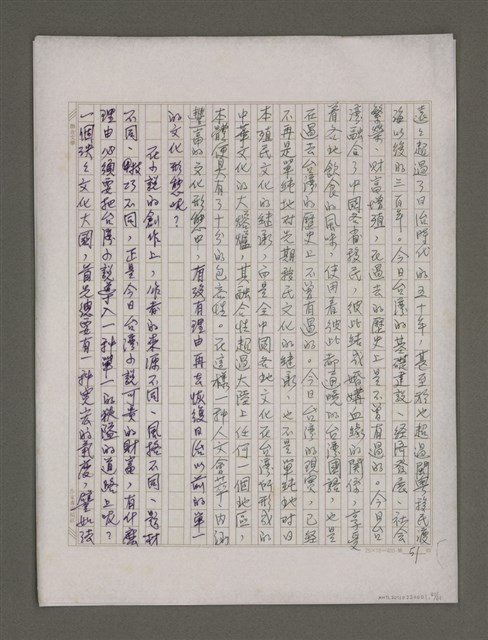 遠超過了日治時代的五十年，甚至於也超過閩粵移民渡
海以後的三百年。今日台灣的基礎建設、經濟發展、社會
繁榮、財富增殖，在過去的歷史上是不曾有過的。今日台
灣融合了中國各省移民，彼此結成婚媾血緣的關係，享受
着各地飲食的風味，使用着彼此都通曉的台灣國語，也是
在過去台灣的歷史上不曾有過的。今日台灣的現實，已經
不再是單純地對先期移民文化的繼承，也不是單純地對日
本殖民文化的繼承，而是全中國各地文化在台灣所形成的
中華文化的大熔爐，其融合性超過大陸上任何一個地區，
本體便具有了十分的包容性。在這樣一種人文薈萃、內涵
豐富的文化形態中，有沒有理由再去恢復日治以前的單一
的文化形態呢？
在小說的創作上，作者的來源不同、風格不同、題材
不同、技巧不同，正是今日台灣小說可貴的財富，有什麼
理由必須要把台灣小說導入一種單一的狹隘的道路上呢？
一個泱泱文化大國，首先總要有一種寬宏的氣度，譬如說
51